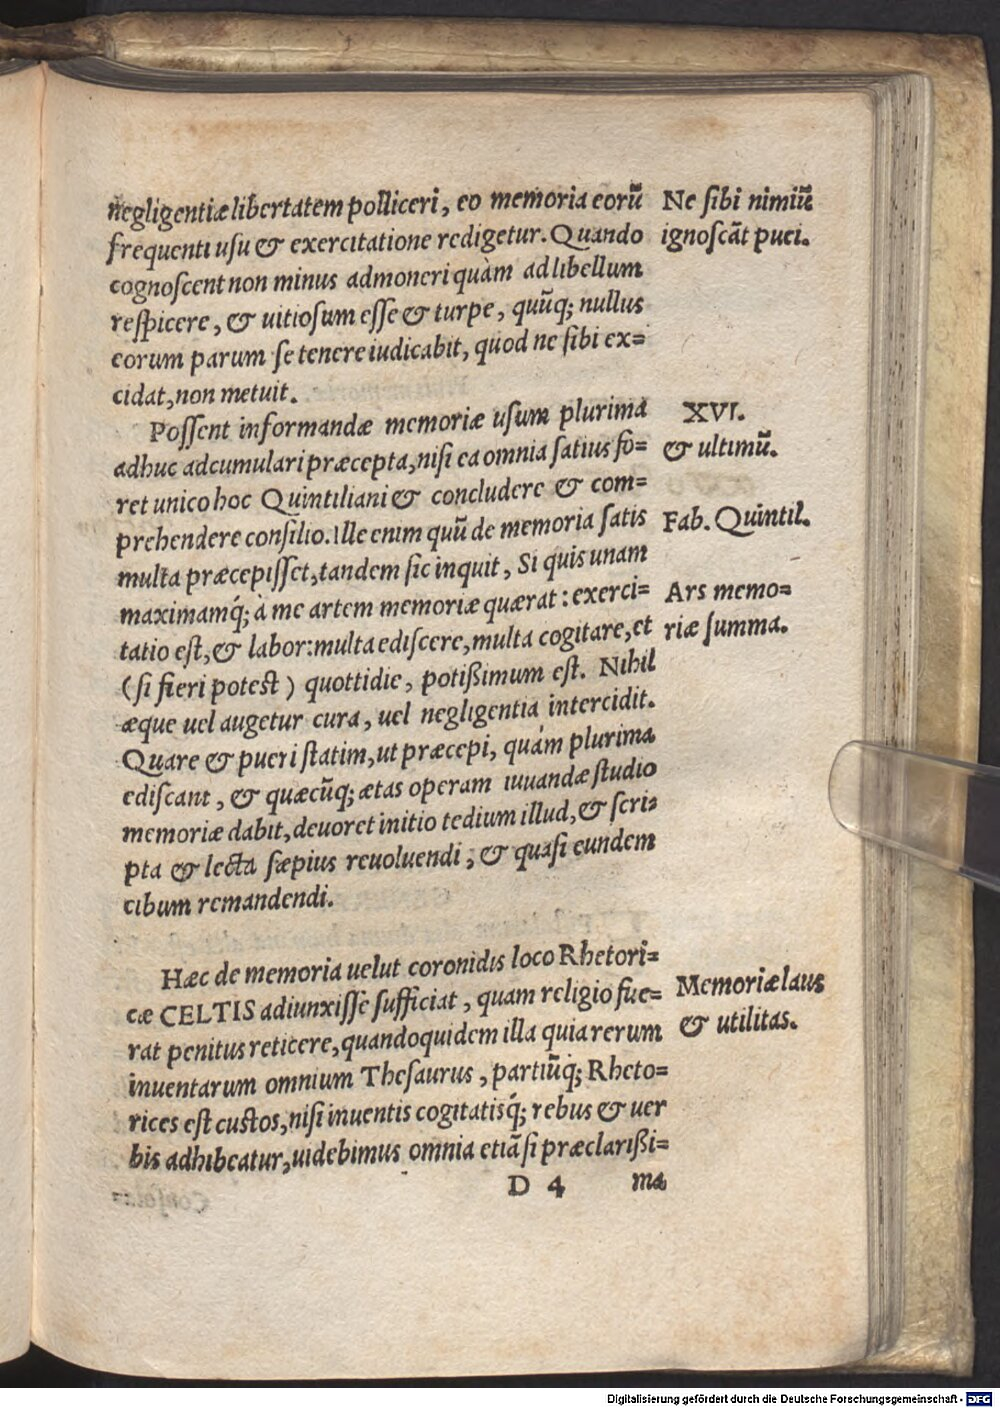 negligentiæ libertatem polliceri, eo memoria eorũ
frequenti usu & exercitatione redigetur. Quando
cognoscent non minus admoneri quàm ad libellum
respicere, & uitiosum esse & turpe, quũq; nullus
eorum parum se tenere iudicabit, quod ne sibi ex=
cidat, non metuit.
Ne sibi nimiũ
ignoscãt pueri.
Possent informandæ memoriæ usum plurima
adhuc adcumulari præcepta, nisi ea omnia satius fo=
ret unico hoc Quintiliani & concludere & com=
prehendere consilio. Ille enim quũ de memoria satis
multa præcepisset, tandem sic inquit, Si quis unam
maximamq́; à me artem memoriæ quærat: exerci=
tatio est, & labor: multa ediscere, multa cogitare, et
(si fieri potest) quottidie, potißimum est. Nihil
æque uel augetur cura, uel negligentia intercidit.
Quare & pueri statim, ut præcepi, quám plurima
ediscant, & quæcũq; ætas operam iuuandæ studio
memoriæ dabit, deuoret initio tedium illud, & scri=
pta & lecta sæpius reuoluendi, & quasi eundem
cibum remandendi.
XVI.
& ultimũ.
Fab. Quintil.
Ars memo=
riæ summa.
Hæc de memoria uelut coronidis loco Rhetori=
cæ CELTIS adiunxisse sufficiat, quam religio fue=
rat penitus reticere, quandoquidem illa quia rerum
inuentarum omnium Thesaurus, partiũq; Rheto=
rices est custos, nisi inuentis cogitatisq́; rebus & uer
bis adhibeatur, uidebimus omnia etiã si præclarißi=
Memoriæ laus
& utilitas.
D 4 ma
Digitalisierung gefördert durch die Deutsche Forschungsgemeinschaft - DFG